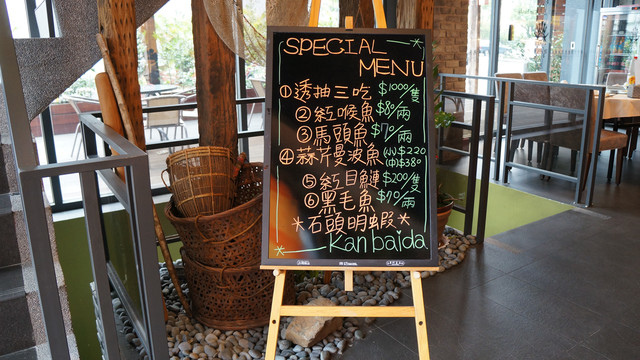 SPECIAL
MENU
①透抽三吃 $1000/隻
②紅喉魚 $80/兩
③馬頭魚 $70/兩
④蒜片曼波魚 (小)$220
(中)$380
⑤紅目鰱 $200/隻
⑥黑毛魚 $70/兩
*石頭明蝦*
Kanbaida